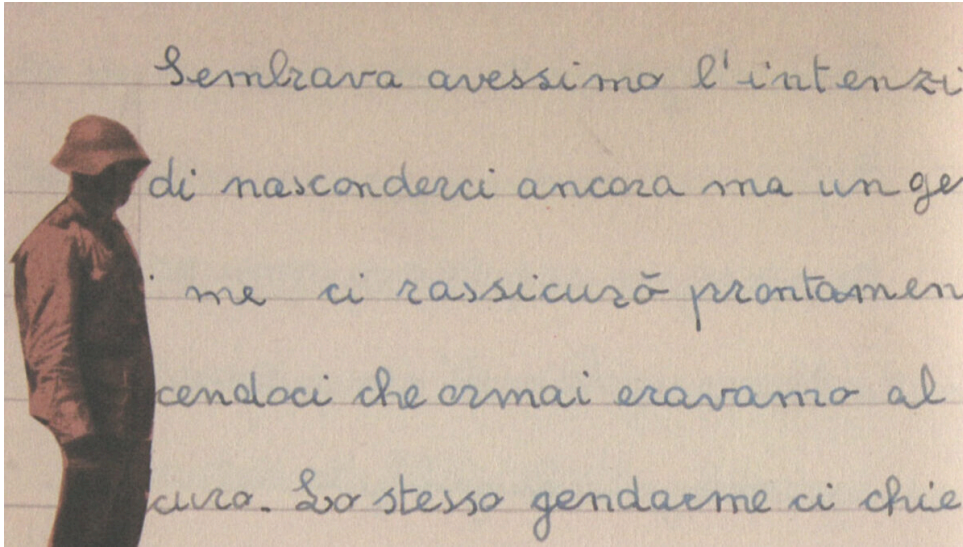 Sembrava avessimo l'intenzi
di nasconderci ancora ma un ge
me ci rassicurò prontamen
cendoci che ormai eravamo al
curo. Lo stesso gendarme ci chie